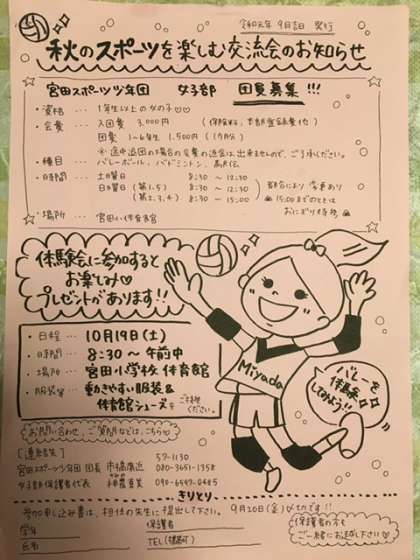 令和元年 9月吉日 発行
秋のスポーツを楽しむ交流会のお知らせ
宮田スポーツ少年団 女子部 団員募集!!!
・資格 … 1年生以上の女の子♡♡
・会費 … 入団費 3,000円 (保険料、本部登録費他)
団費 1~6年生 1,500円 (1ヵ月)
※途中退団の場合の会費の返金は出来ませんので、ご了承ください。
・種目 … バレーボール、バドミントン、
・時間 … 土曜日 8:30 ~ 12:30
日曜日 (第1.5) 8:30 ~ 12:30
(第2.3.4) 8:30 ~ 15:00
都合により変更あり
15:00までのときは
おにぎり持参
・場所 … 宮田小体育館
体験会に参加すると
お楽しみ♡
プレゼントがあります!!
・日程 … 10月19日(土)
・時間 … 8:30~午前中
・場所 … 宮田小学校 体育館
・服装 … 動きやすい服装&
体育館シューズをご持参ください。
Miyada
バレーを
体験
してみよう!!
お問い合わせ、ご質問などはこちらまで
[連絡先] 57-1130
宮田スポーツ少年団 団長 080-3651-1358
女子部保護者代表 090-6497-0485
きりとり
参加申し込み書は、担任の先生に提出して下さい。 9月20日(金)〆切です!!
学年 保護者
氏名 TEL
保護者の方も
ご一緒にお越し下さい♡